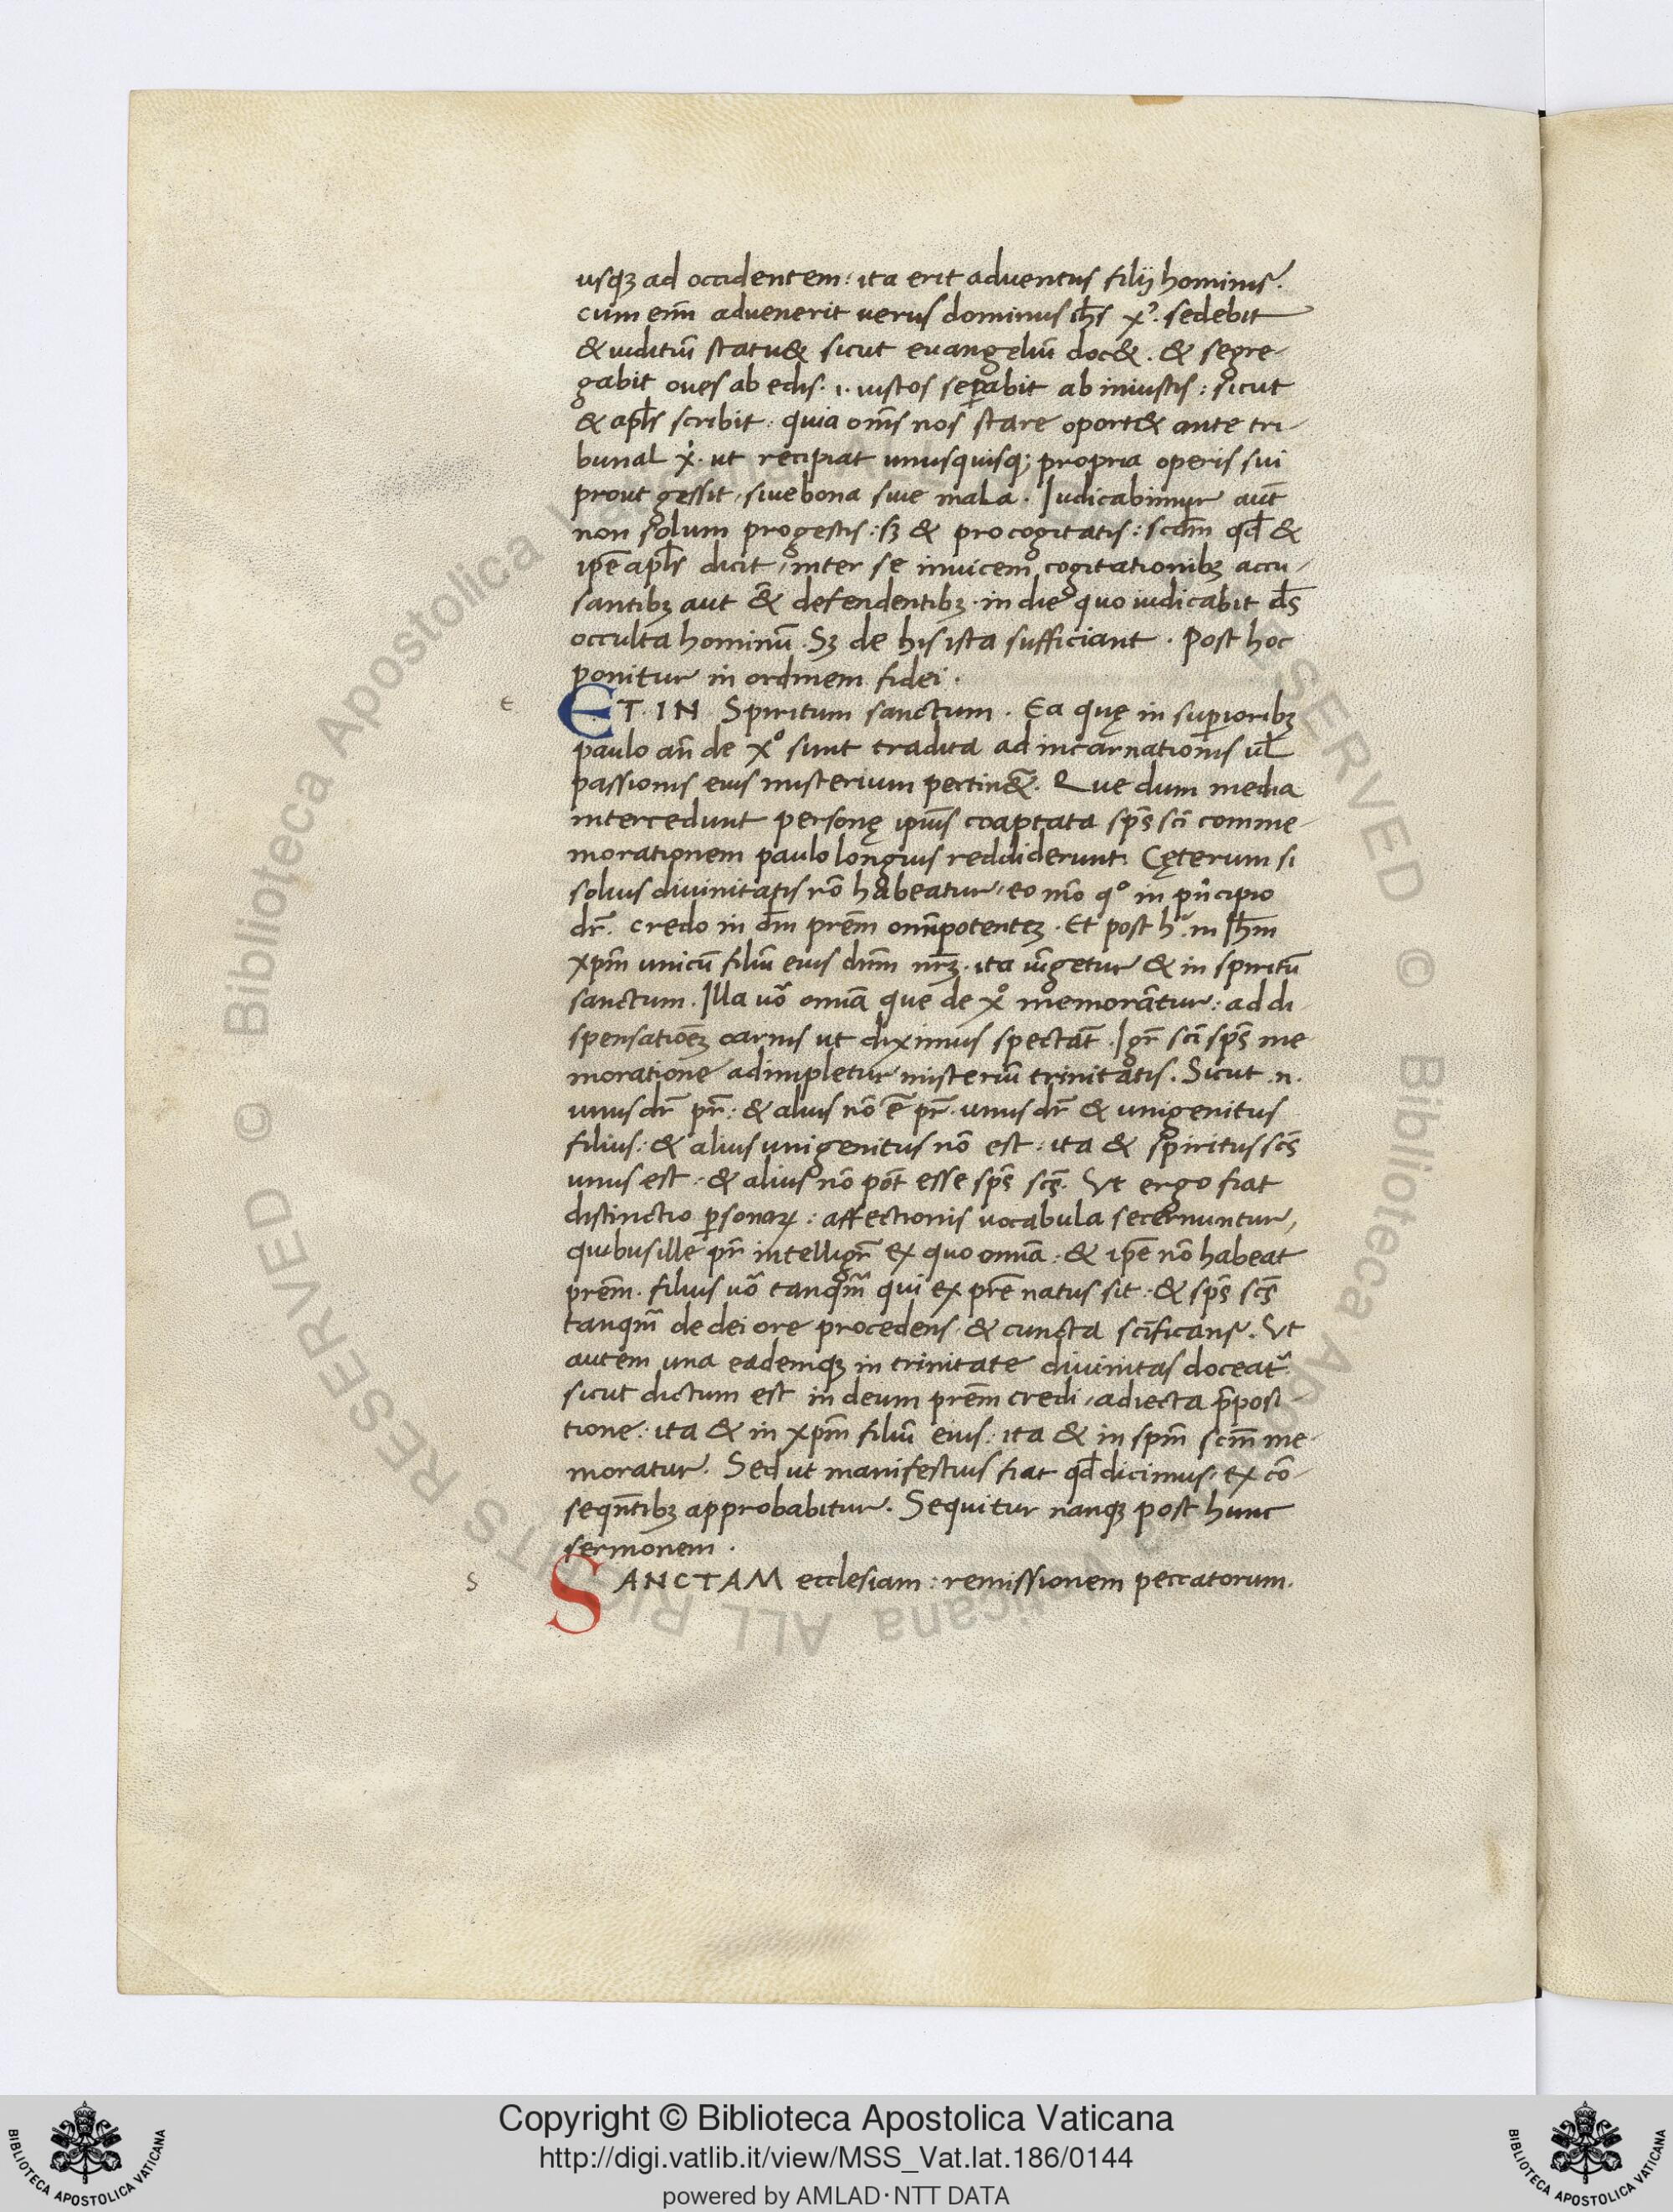 usqꝫ ad occidentem: ita erit adventus filij hominis.
cum eni᷑ advenerit verus dominus ih̅s xꝰ. sedebit
& iuditiū statu& sicut evangeliū doc&. & segre-
gabit oves ab edis. .i. iustos sep̱abit ab iniustis: sicut
& apl̅s scribit: quia om̅s nos stare oport& ante tri-
bunal x̅i. ut recipiat unusquisq; propria operis sui
prout gessit, sive bona sive mala. Iudicabimur aut̅
non solum pro gestis: sꝫ & pro cogitatis: scd̅m qd̅ &
ip̅e apl̅s dicit, inter se invicem cogitationibꝫ accu-
santibꝫ aut &̅ defendentibꝫ. in die quo iudicabit d̅s
occulta hominū. Sꝫ de his ista sufficiant. Post hoc
ponitur in ordinem fidei.
e
ET IN Spiritum sanctum. Ea quę in sup̱ioribꝫ
paulo an̅ de xº sunt tradita ad incarnationis ul̅
passionis eius misterium pertin&̅. Que dum media
intercedunt personę ip̅ius coaptata sp̅s sc̅i comme-
morationem paulo longius reddiderunt. Cęterum si
solius divinitatis rō habeatur, eo mō qº in pn̅cipio
dr̅. credo in dm̅ prē̅m omnipotentēꝫ. Et post h̅. in Ih̅m
xpm̅ unicū filiū eius dnm̅ nr̅ꝫ. ita iūgetur & in spiritū
sanctum. Illa vo̅ omnia que de xº memorātur: ad di-
spensationēꝫ carnis ut diximus spectāt. Igr̅ sc̅i sp̅s me
moratione adimpletur misteriū trinitatis. Sicut .n.
unus dr̅ pr̅: & alius nō ē pr̅. unus dr̅ & unigenitus
filius: & alius unigenitus nō est: ita & spiritus sc̅s
unus est: & alius nō pōt esse sp̅s sc̅s. Ut ergo fiat
distinctio p̱sonaꝝ: affectionis vocabula secernuntur,
quibus ille pr̅ intelligr̅ ex quo omnia: & ip̅e nō habeat
prē̅m. filius vo̅ tanqm̅ qui ex prē natus sit: & sp̅s sc̅s
tanqm̅ de dei ore procedens & cuncta sc̅ificans. Ut
autem una eademqꝫ in trinitate divinitas doceat᷑.
sicut dictum est in deum prē̅m credi, adiecta p̅posi-
tione: ita & in xpm̅ filiū eius: ita & in spm̅ scm̅ me-
moratur. Sed ut manifestius fiat qd̅ dicimus, ex cō-
seqn̅tibꝫ approbabitur. Sequitur nanqꝫ post hunc
sermonem.
s
SANCTAM ecclesiam: remissionem peccatorum.
© Biblioteca Apostolica Vaticana ALL RIGHTS RESERVED
© Biblioteca Apostolica Vaticana ALL RIGHTS RESERVED
BIBLIOTECA APOSTOLICA VATICANA
Copyright © Biblioteca Apostolica Vaticana
http://digi.vatlib.it/view/MSS_Vat.lat.186/0144
powered by AMLAD·NTT DATA
BIBLIOTECA APOSTOLICA VATICANA